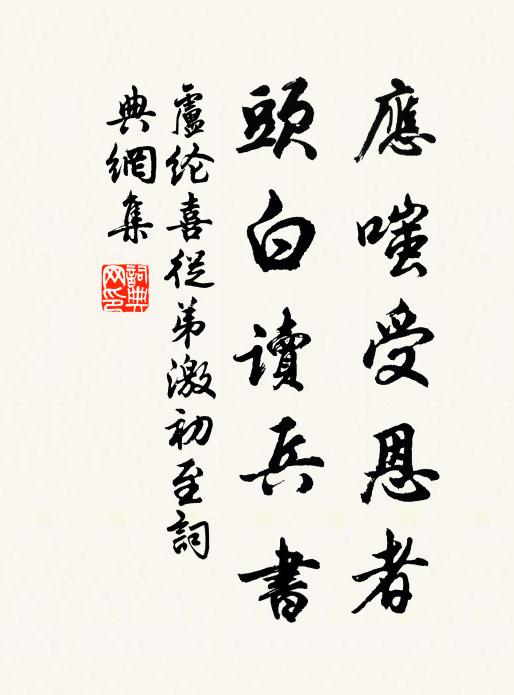 應嗤受恩者
頭白讀兵書
盧纶喜從弟激初至詞
典網集
詞典網印